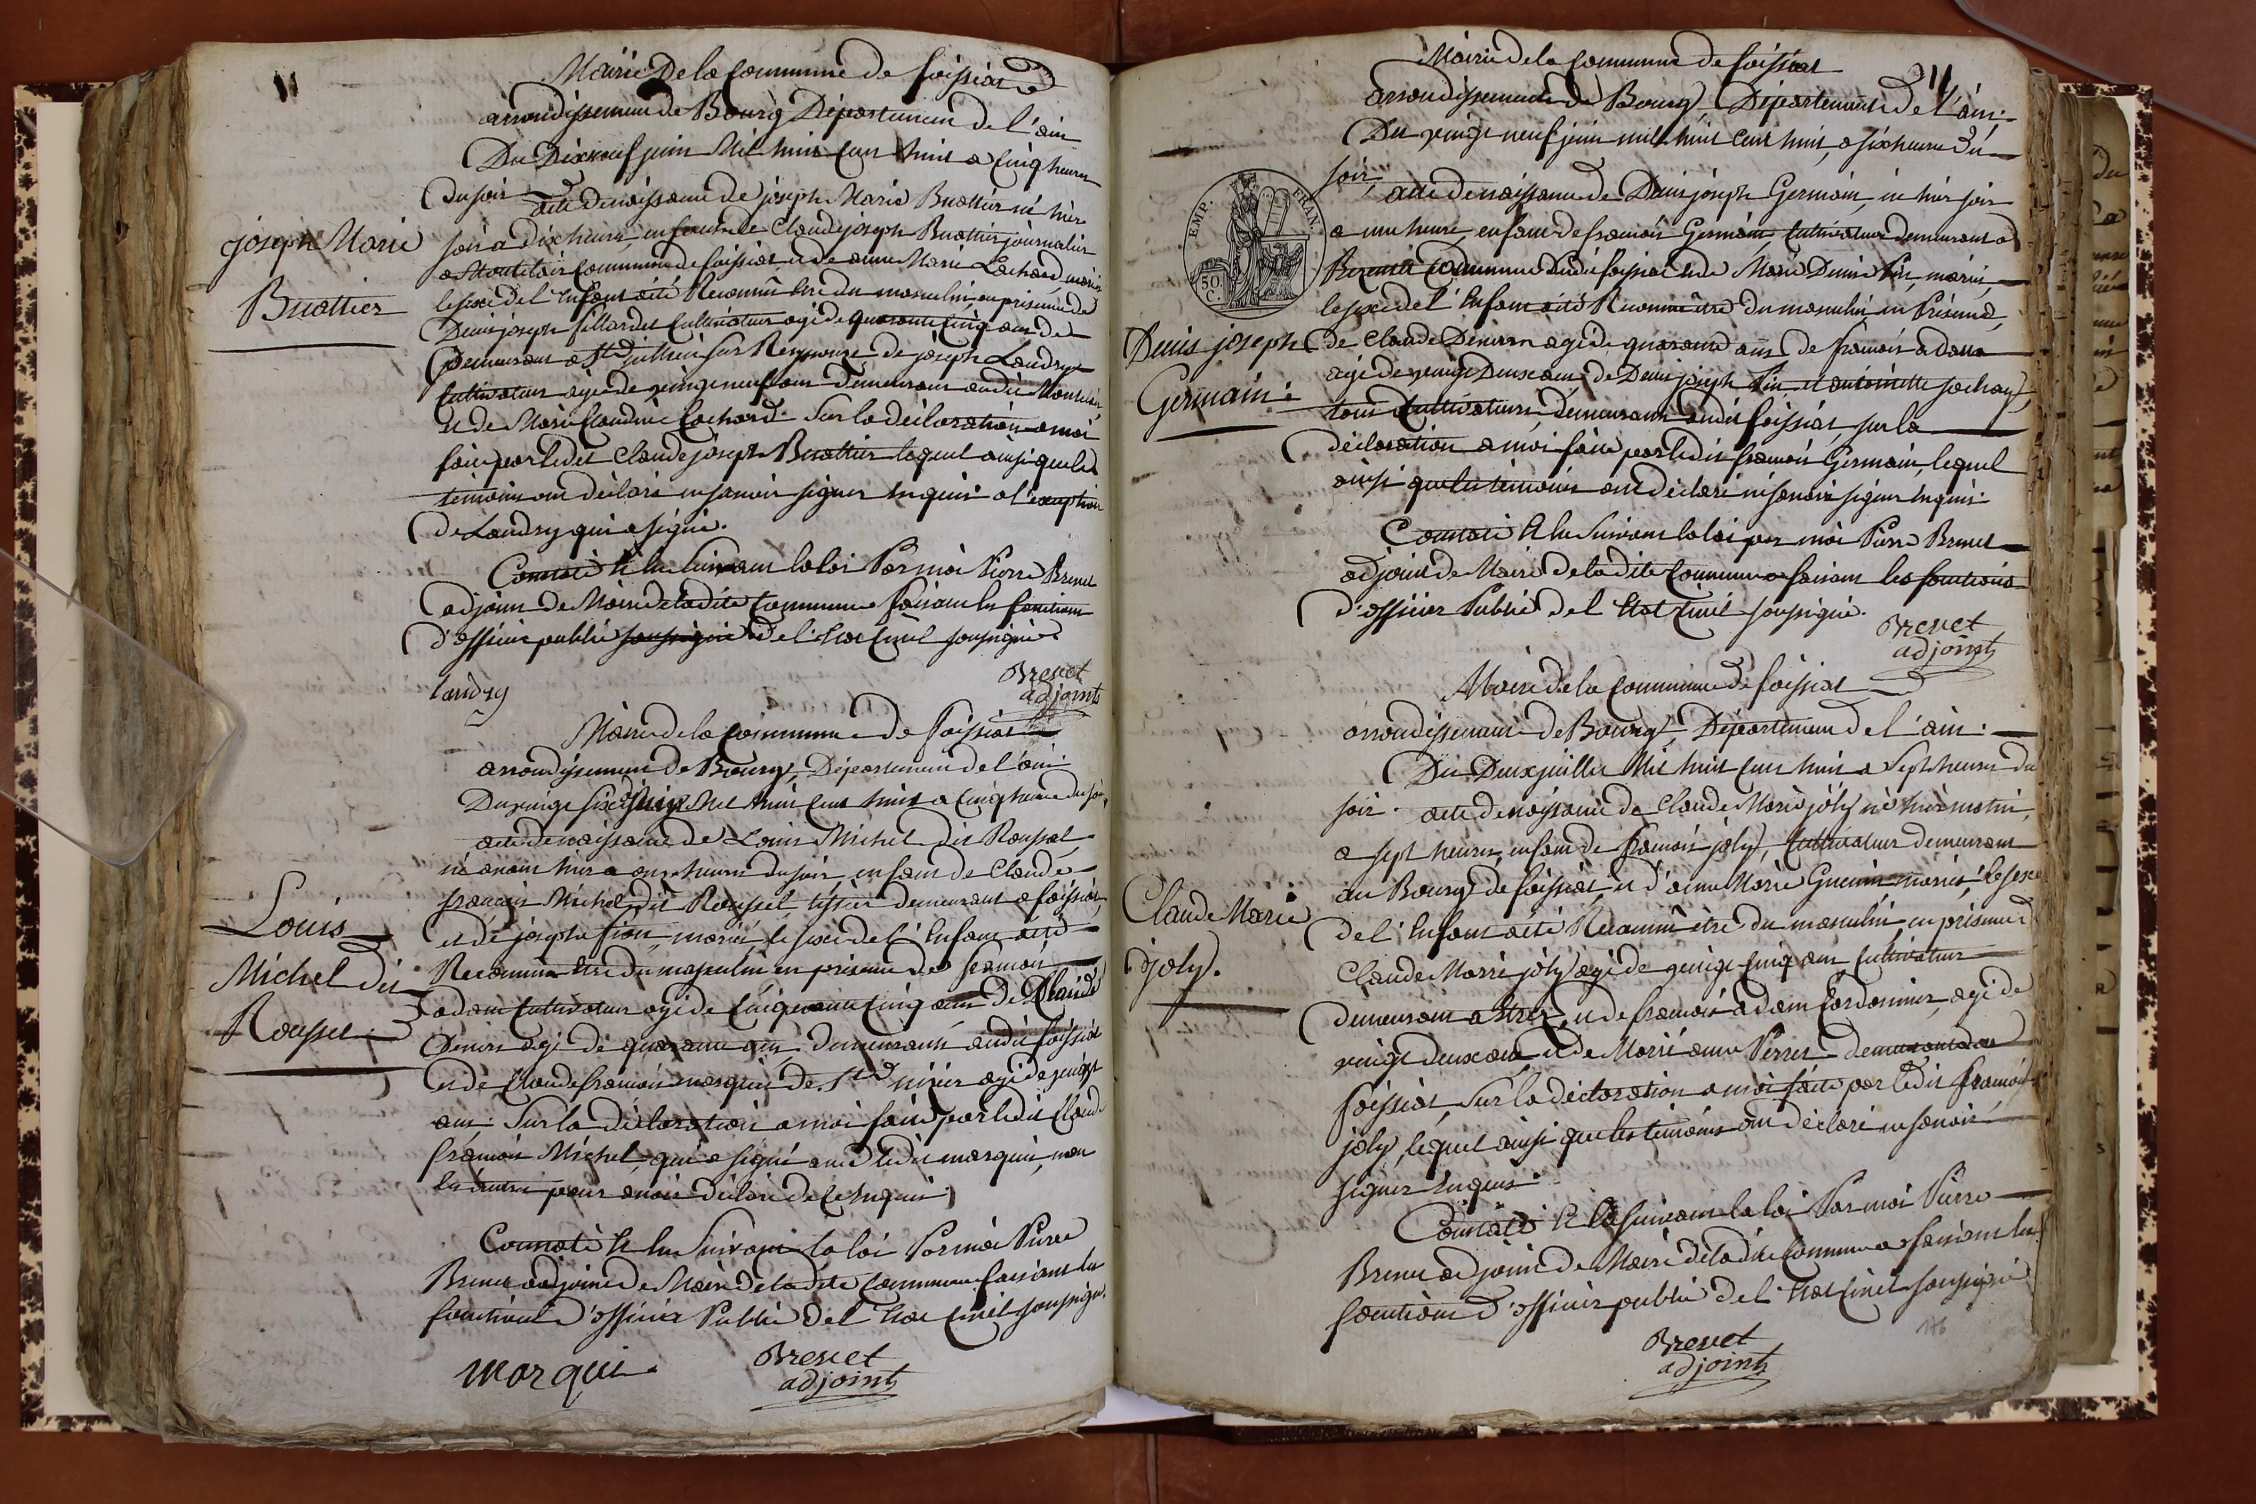 Mairie De la Commune de foissiat
arrondissement de Bourg Département de l'ain
Du Dixneuf juin Mil huit Cent huit a Cinq heures
Du soir
acte De naissance de joseph Marie Buattier né hier
soir a dix heures enfant de Claude joseph Buattier journalier
a Commune de foissiat et de anne Marie Cochard mariés
le sexe de l'Enfant a été Reconnu être du masculin en présence de
Denis joseph Cultivateur agé de quarante Cinq ans de
Demeurant a St julien sur Reyssouze de joseph Landry
Cultivateur agé de vingt neuf ans demeurant audit
et de Marie Claudine Cochard Sur la déclaration a moi
faite par ledit Claude joseph Buattier lequel ainsi que les
témoins ont déclaré ne savoir signer Enquis a l'exception
de Landry qui a signé.
Constaté et lu Suivant la loi Par moi Pierre Brevet
adjoint de Maire de la dite Commune faisant les fonctions
d'officier public soussigné de l'Etat Civil soussigné
landry
Brevet
adjoint
joseph Marie
Buattier
Mairie de la Commune de foissiat
arrondissement de Bourg, Département de l'ain.
Du vingt six juin Mil huit Cent huit a Cinq heures du soir
acte de naissance de Louis Michel dit Roussel
né avant hier a onze heures du soir enfant de Claude
francois Michel dit Roussel tissier demeurant a foissiat
et de josephe mariés le sexe de l'Enfant a été
Reconnu être du masculin en présence de francois
adam Cultivateur agé de Cinquante Cinq ans De Claude
Denis agé de quarante ans demeurants audit foissiat
et de Claude francois marquis de St nizier agé de vingt
ans Sur la déclaration a moi faite par ledit Claude
francois Michel, qui a signé avec ledit marquis, non
les autres pour avoir déclaré de ce Enquis
Constaté et lu Suivant la loi Par moi Pierre
Brevet adjoint de Maire de la dite Commune faisant les
fonctions d'officier Public de l'Etat Civil soussigné.
marqui
Brevet
adjoint
Louis
Michel dit
Roussel
Mairie de la Commune de foissiat
arrondissement de Bourg Département de l'ain.
Du vingt neuf juin mil huit Cent huit, a six heures du
soir,
acte de naissance de Denis joseph Germain, né hier soir
a une heure, enfant de francois Germain, Cultivateur demeurant a
Commune dudit foissiat et de Marie Denise Pin, mariés,
le sexe de l'Enfant a été Reconnu être du masculin en Présence
de Claude Denis agé de quarante ans de francois adam
agé de vingt Deux ans, de Denis joseph Pin et antoinette
tous Cultivateurs, demeurants audit foissiat, sur la
déclaration a moi faite par ledit francois Germain, lequel
ainsi que les témoins ont déclaré ne savoir signer Enquis.
Constaté et lu Suivant la loi par moi Pierre Brevet
adjoint de Maire de la dite Commune faisant les fonctions
d'officier Public de l'Etat Civil soussigné.
Brevet
adjoint
EMP. FRAN.
50. C.
Denis joseph
Germain.
Mairie de la Commune de foissiat
arrondissement de Bourg, Département de l'ain.
Du Deux juillet Mil huit Cent huit a Sept heures du
soir. acte de naissance de Claude Marie joly né hier matin,
a sept heures, enfant de francois joly, Cultivateur demeurant
au Bourg de foissiat, et d'anne Marie Guerin mariés, le sexe
de l'Enfant a été Reconnu être du masculin, en présence de
Claude Marie joly agé de vingt Cinq ans Cultivateur
demeurant a Etrez, et de francois adam Cordonnier, agé de
vingt deux ans, et de Marie anne Perret demeurant a
foissiat, Sur la déclaration a moi faite par ledit francois
joly, lequel ainsi que les témoins ont déclaré ne savoir
signer Enquis.
Constaté et lu suivant la loi Par moi Pierre
Brevet adjoint de Maire de la dite Commune faisant les
fonctions d'officier public de l'Etat Civil soussigné
Brevet
adjoint
Claude Marie
joly.